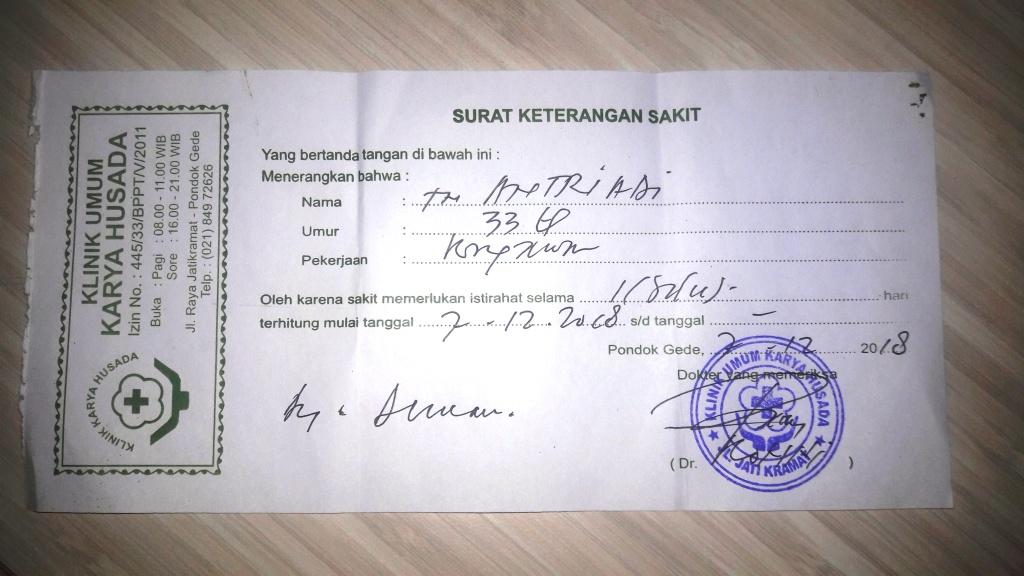 KLINIK KARYA HUSADA
KLINIK UMUM
KARYA HUSADA
Izin No. : 445/33/BPPT/V/2011
Buka : Pagi : 08.00 - 11.00 WIB
Sore : 16.00 - 21.00 WIB
Jl. Raya Jatikramat - Pondok Gede
Telp. : (021) 849 72626
SURAT KETERANGAN SAKIT
Yang bertanda tangan di bawah ini :
Menerangkan bahwa :
Nama :
Umur : 33
Pekerjaan :
Oleh karena sakit memerlukan istirahat selama hari
terhitung mulai tanggal 7-12-2018 s/d tanggal -
Pondok Gede, 7-12 2018
Dokter yang memeriksa
KLINIK UMUM KARYA HUSADA
JATI KRAMAT
( Dr. )